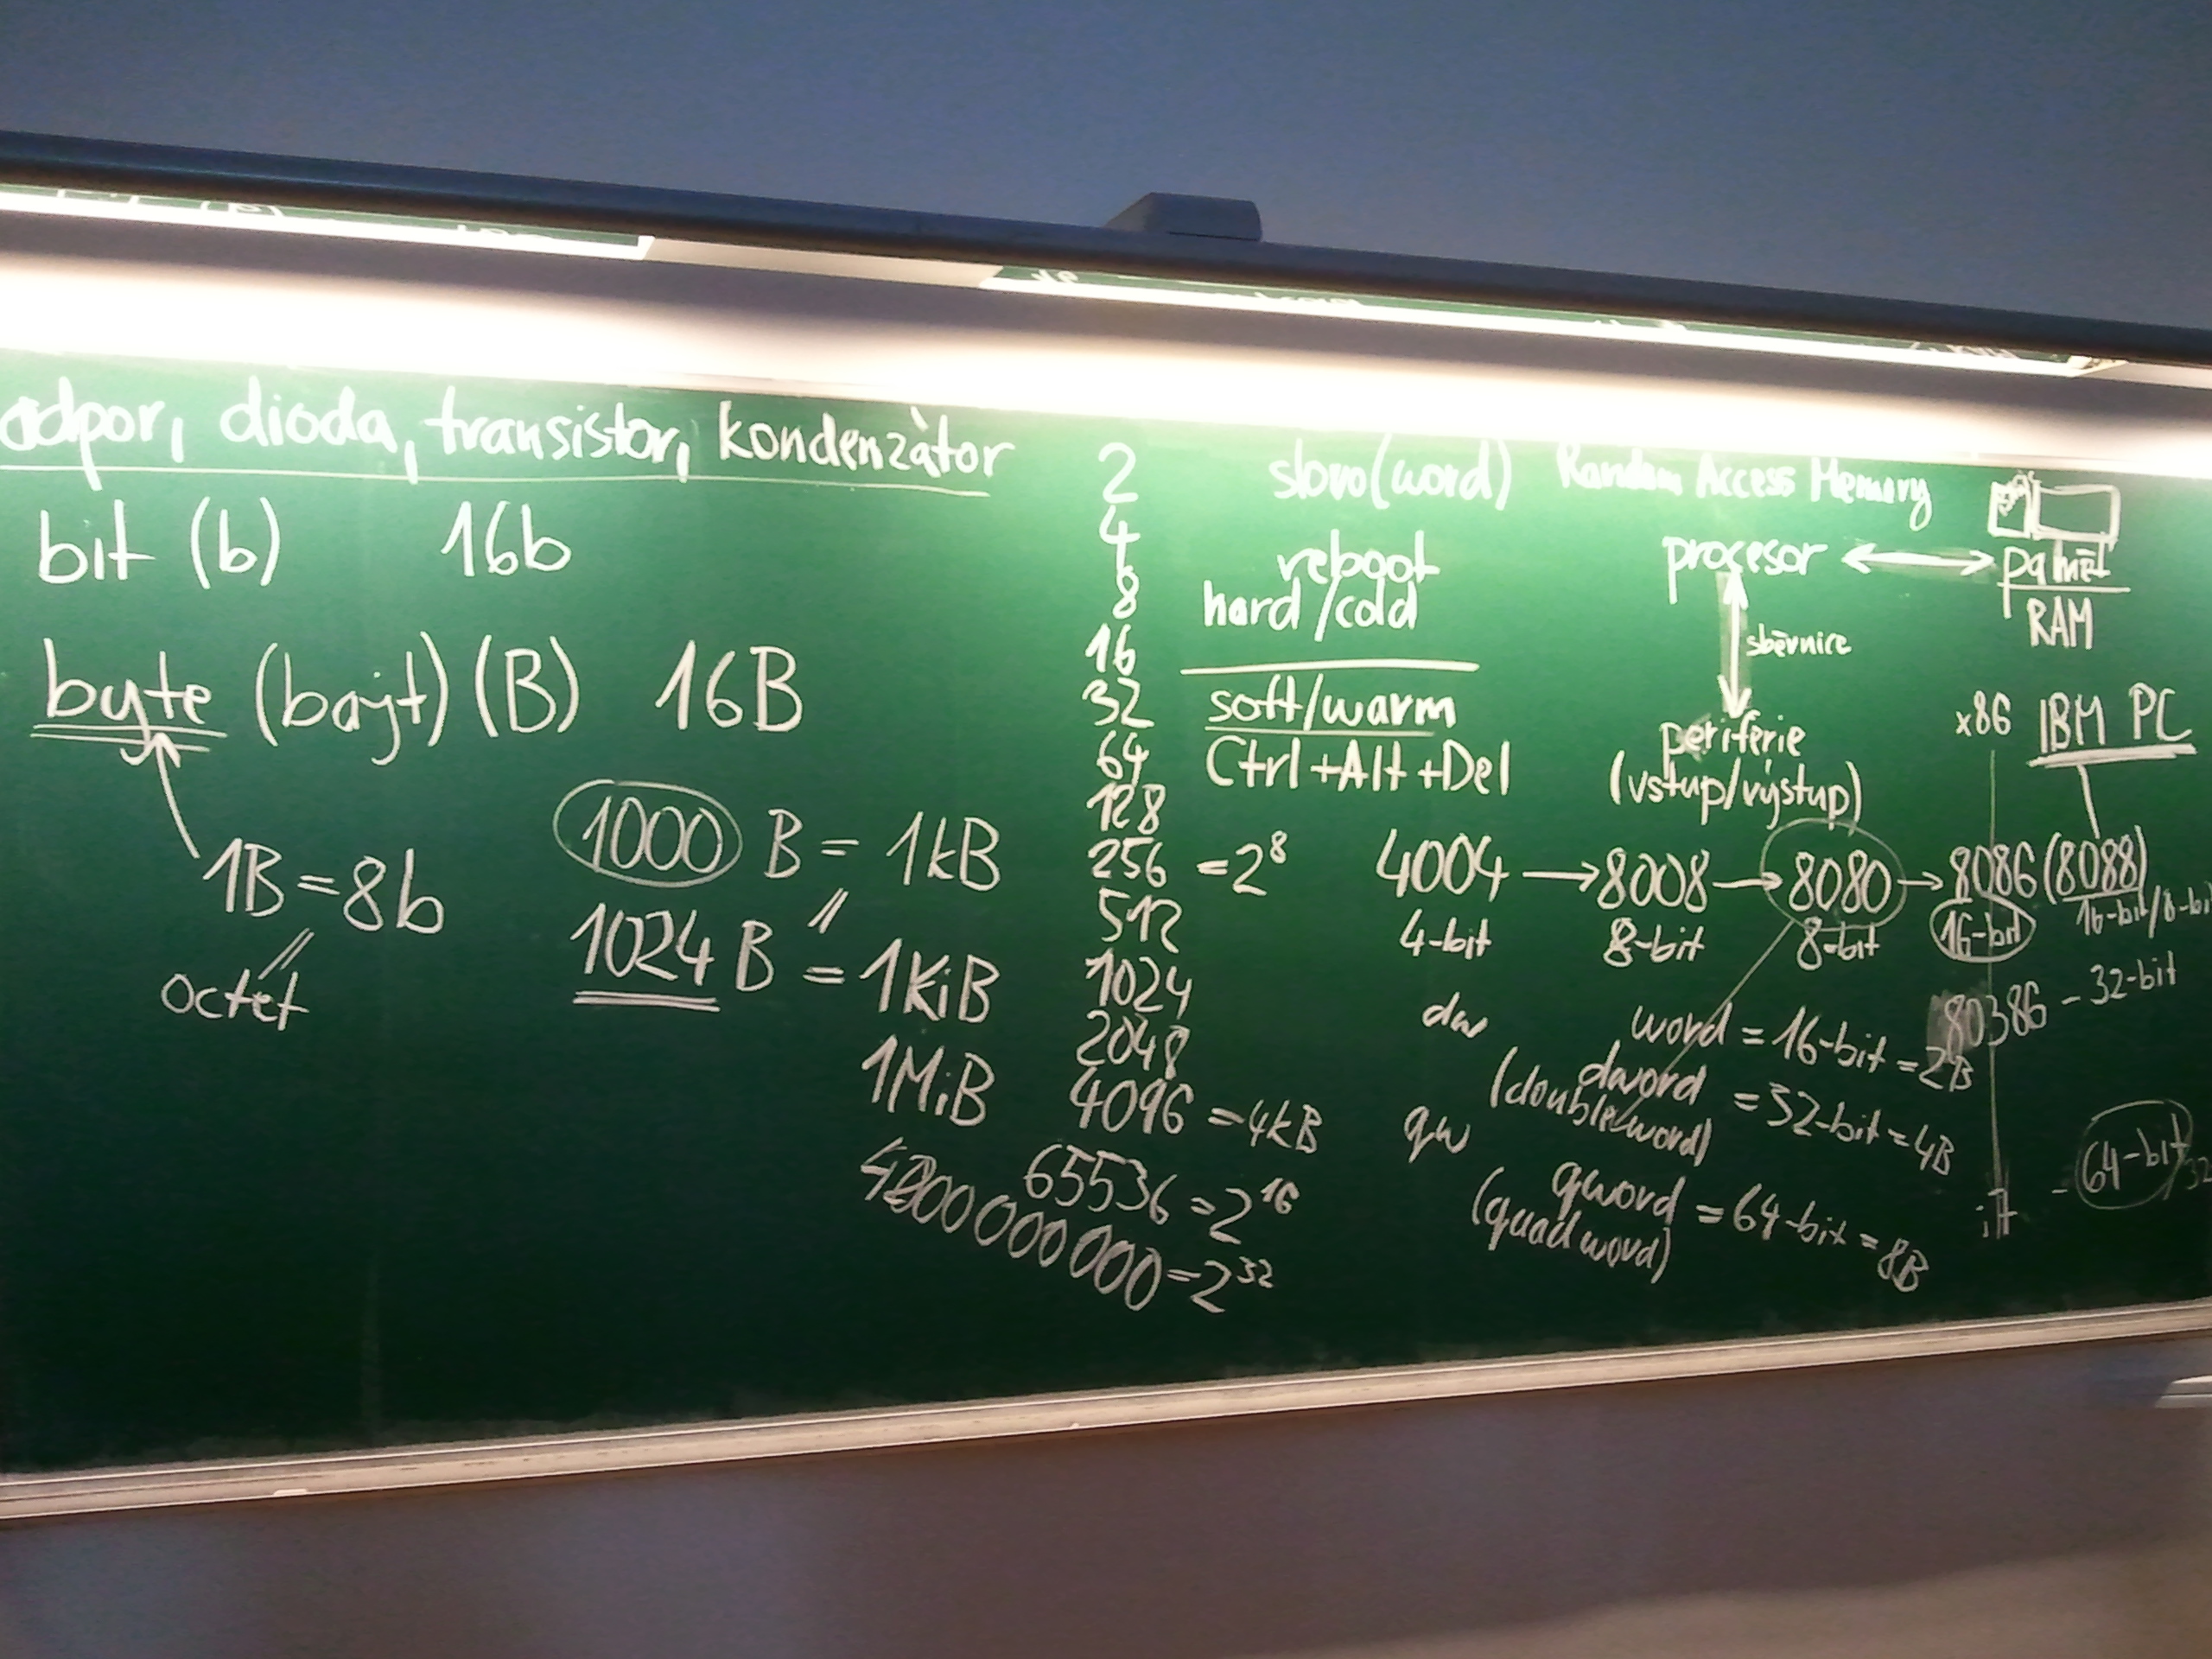 odpor, dioda, transistor, kondenzátor
bit (b) 16b
byte (bajt) (B) 16B
1B = 8b
octet
1000 B = 1kB
1024 B = 1KiB
1MiB
2
4
8
16
32
64
128
256 = 2^8
512
1024
2048
4096 = 4kB
65536 = 2^16
000 000 = 2^32
slovo (word)
reboot
hard/cold
soft/warm
Ctrl+Alt+Del
Random Access Memory
procesor ↔ paměť
RAM
sběrnice
periferie
(vstup/výstup)
x86 IBM PC
4004 → 8008 → 8080 → 8086 (8088)
4-bit 8-bit 8-bit 16-bit 16-bit/8-bit
80386 - 32-bit
dw word = 16-bit = 2B
dword = 32-bit = 4B
(doubleword)
qw qword = 64-bit = 8B
(quadword)
i7 - 64-bit/32